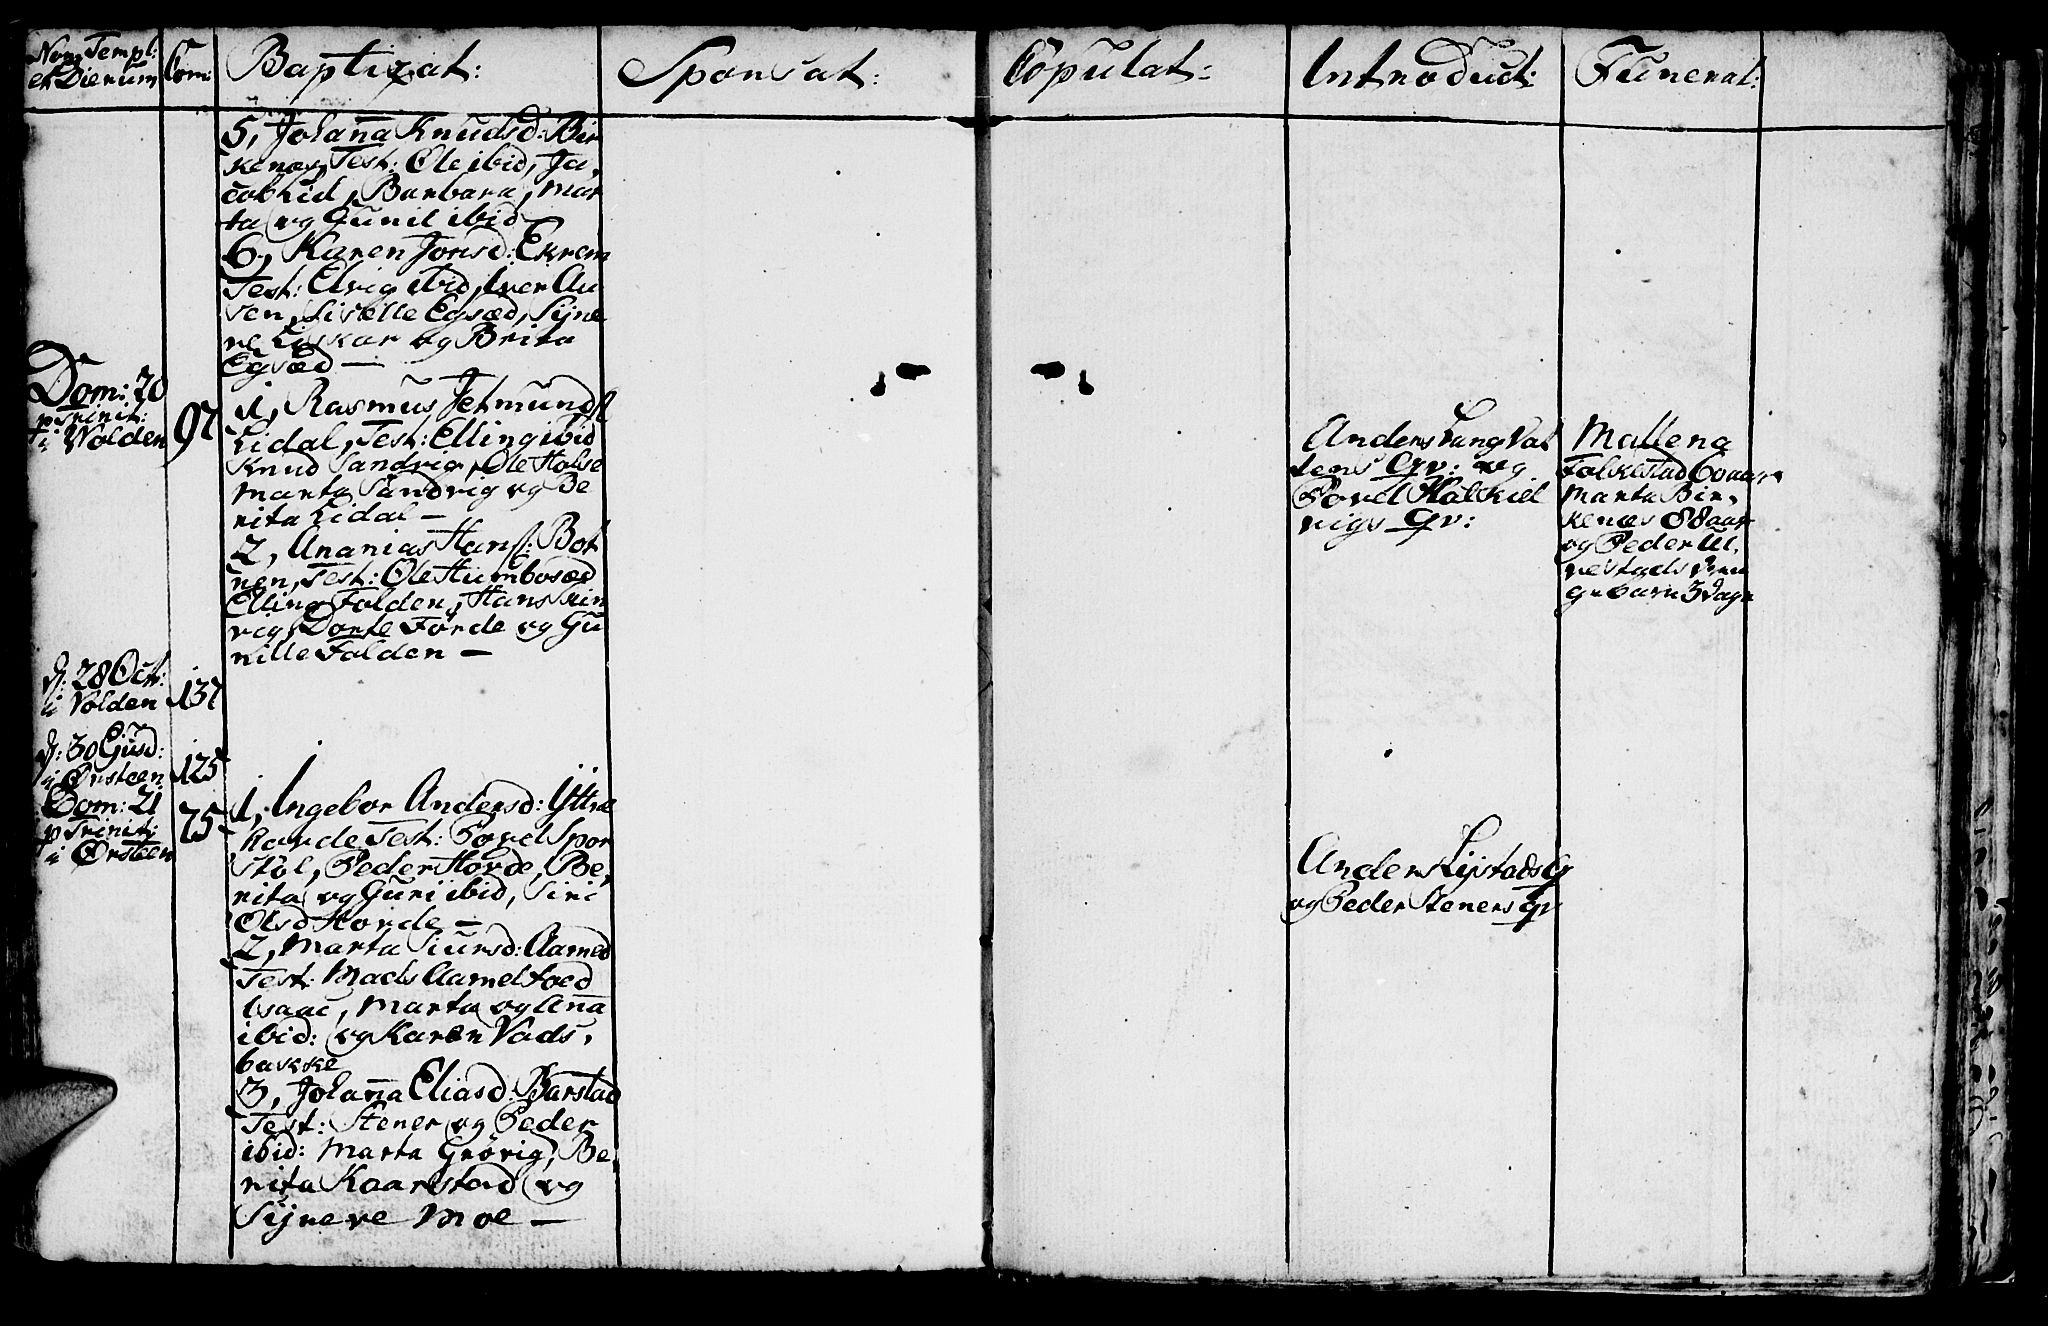 Nom: Templ:
et Dierum
Com:
Baptizat:
Sponsat:
Copulat:
Introduct:
Funerat:
5, Johan̄a Knudsd: Bir
kenæs, Test: Ole ibid, Ja,
cob Lid, Barbara, Mar
ta og Gunil ibid
6, Karen Jonsd: Ekrem
Test: Elvig ibid, Iver Au
sen, Liselle Egsæd, Sijne
ve Liskar og Brita
Egsæd —
Dom: 20
p Trinit:
i Wolden
97
1, Rasmus Jetmunds
Lidal, Test: Elling ibid
Knud Sandvig, Ole Holse
Marta Sandvig og Be
rita Lidal —
2, Ananias Hans: Bot
nen, Test: Ole Humbosæd
Elling Folden, Hans Stin
vig, Dorte Förde og Gu
nille Folden —
Anders Lang Vat
tens Qv: og
Povel Halkiel
vigs Qv:
Mallena
Folkestad 60 aar
Marta Bir,
kenæs 88 aar
og Peder Ul,
vestads
barn 3 Dage
d: 28 Oct:
i Volden
137
d: 30 Ejusd:
i Ørsteen
125
Dom: 21
p Trinit:
i Ørsteen
75
1, Ingebor Andersd: Yttre
Test: Povel Spor
stöl, Peder Horde, Be,
rita og Guri ibid, Siri
Olsd Horde —
2, Marta Siursd: Aamed
Test: Mads Aamel
Isaac, Marta og An̄a
ibid: og Karen Vads,
bakke
3, Johan̄a Eliasd: Barstad
Test: Stener og Peder
ibid: Marta Grövig, Be,
rita Kaarstad og
Sijneve Moe —
Anders Lijstads Q
og Peder Steners Qv